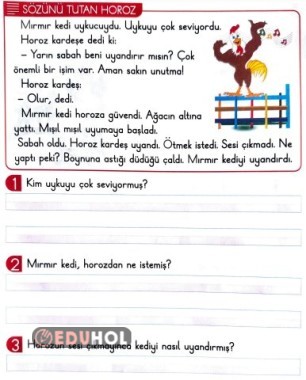 SÖZÜNÜ TUTAN HOROZ
Mırmır kedi uykucuydu. Uykuyu çok seviyordu.
Horoz kardeşe dedi ki:
– Yarın sabah beni uyandırır mısın? Çok
önemli bir işim var. Aman sakın unutma!
Horoz kardeş:
– Olur, dedi.
Mırmır kedi horoza güvendi. Ağacın altına
yattı. Mışıl mışıl uyumaya başladı.
Sabah oldu. Horoz kardeş uyandı. Ötmek istedi. Sesi çıkmadı. Ne
yaptı peki? Boynuna astığı düdüğü çaldı. Mırmır kediyi uyandırdı.
1 Kim uykuyu çok seviyormuş?
2 Mırmır kedi, horozdan ne istemiş?
EDUHOL
3 Horozun sesi çıkmayınca kediyi nasıl uyandırmış?